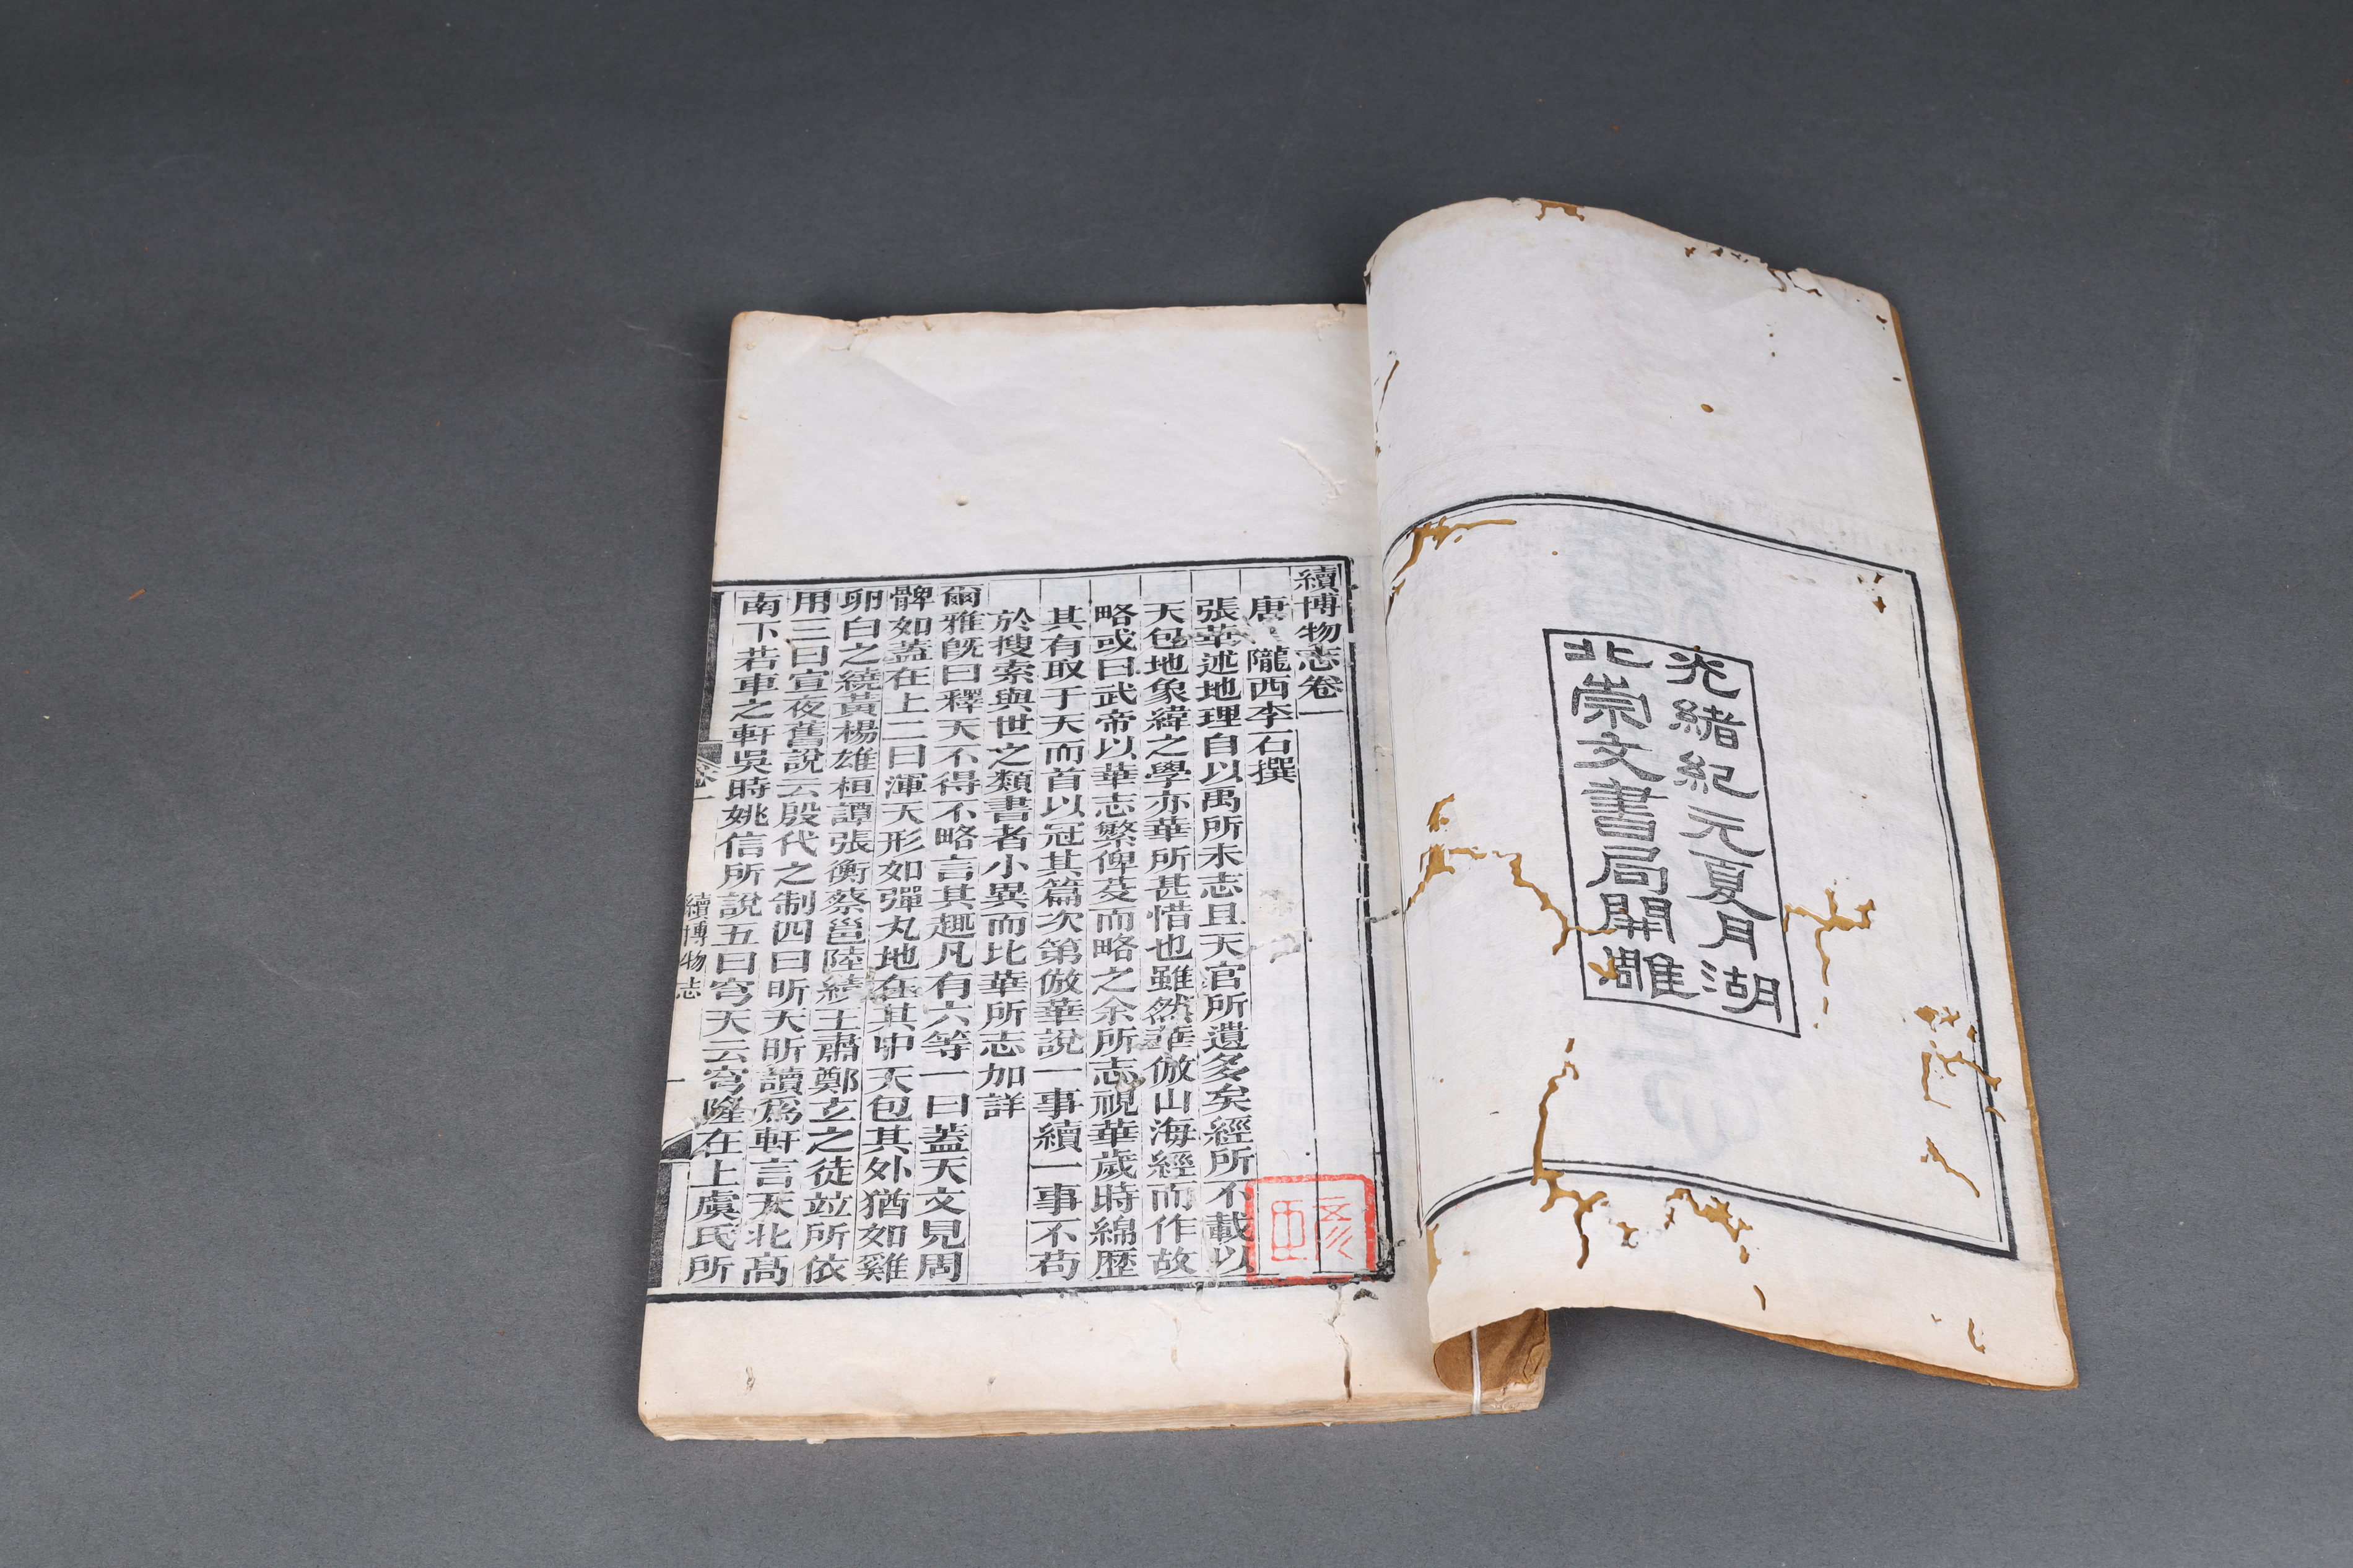 光緒紀元夏月湖
北崇文書局開雕
續博物志卷一
唐 隴西李石撰
張華述地理自以禹所未志且天官所遺多矣經所不載以
天包地象緯之學亦華所甚惜也雖然華倣山海經而作故
略或曰武帝以華志繁俾芟而略之余所志視華歲時綿歷
其有取于天而首以冠其篇次第倣華說一事續一事不苟
於搜索與世之類書者小異而比華所志加詳
爾雅旣曰釋天不得不略言其趣凡有六等一曰蓋天文見周
髀如蓋在上二曰渾天形如彈丸地在其中天包其外猶如雞
卵白之繞黃楊雄桓譚張衡蔡邕陸績王肅鄭玄之徒竝所依
用三曰宣夜舊說云殷代之制四曰昕天昕讀爲軒言天北高
南下若車之軒吳時姚信所說五曰穹天云穹隆在上虞氏所
卷一
續博物志
一